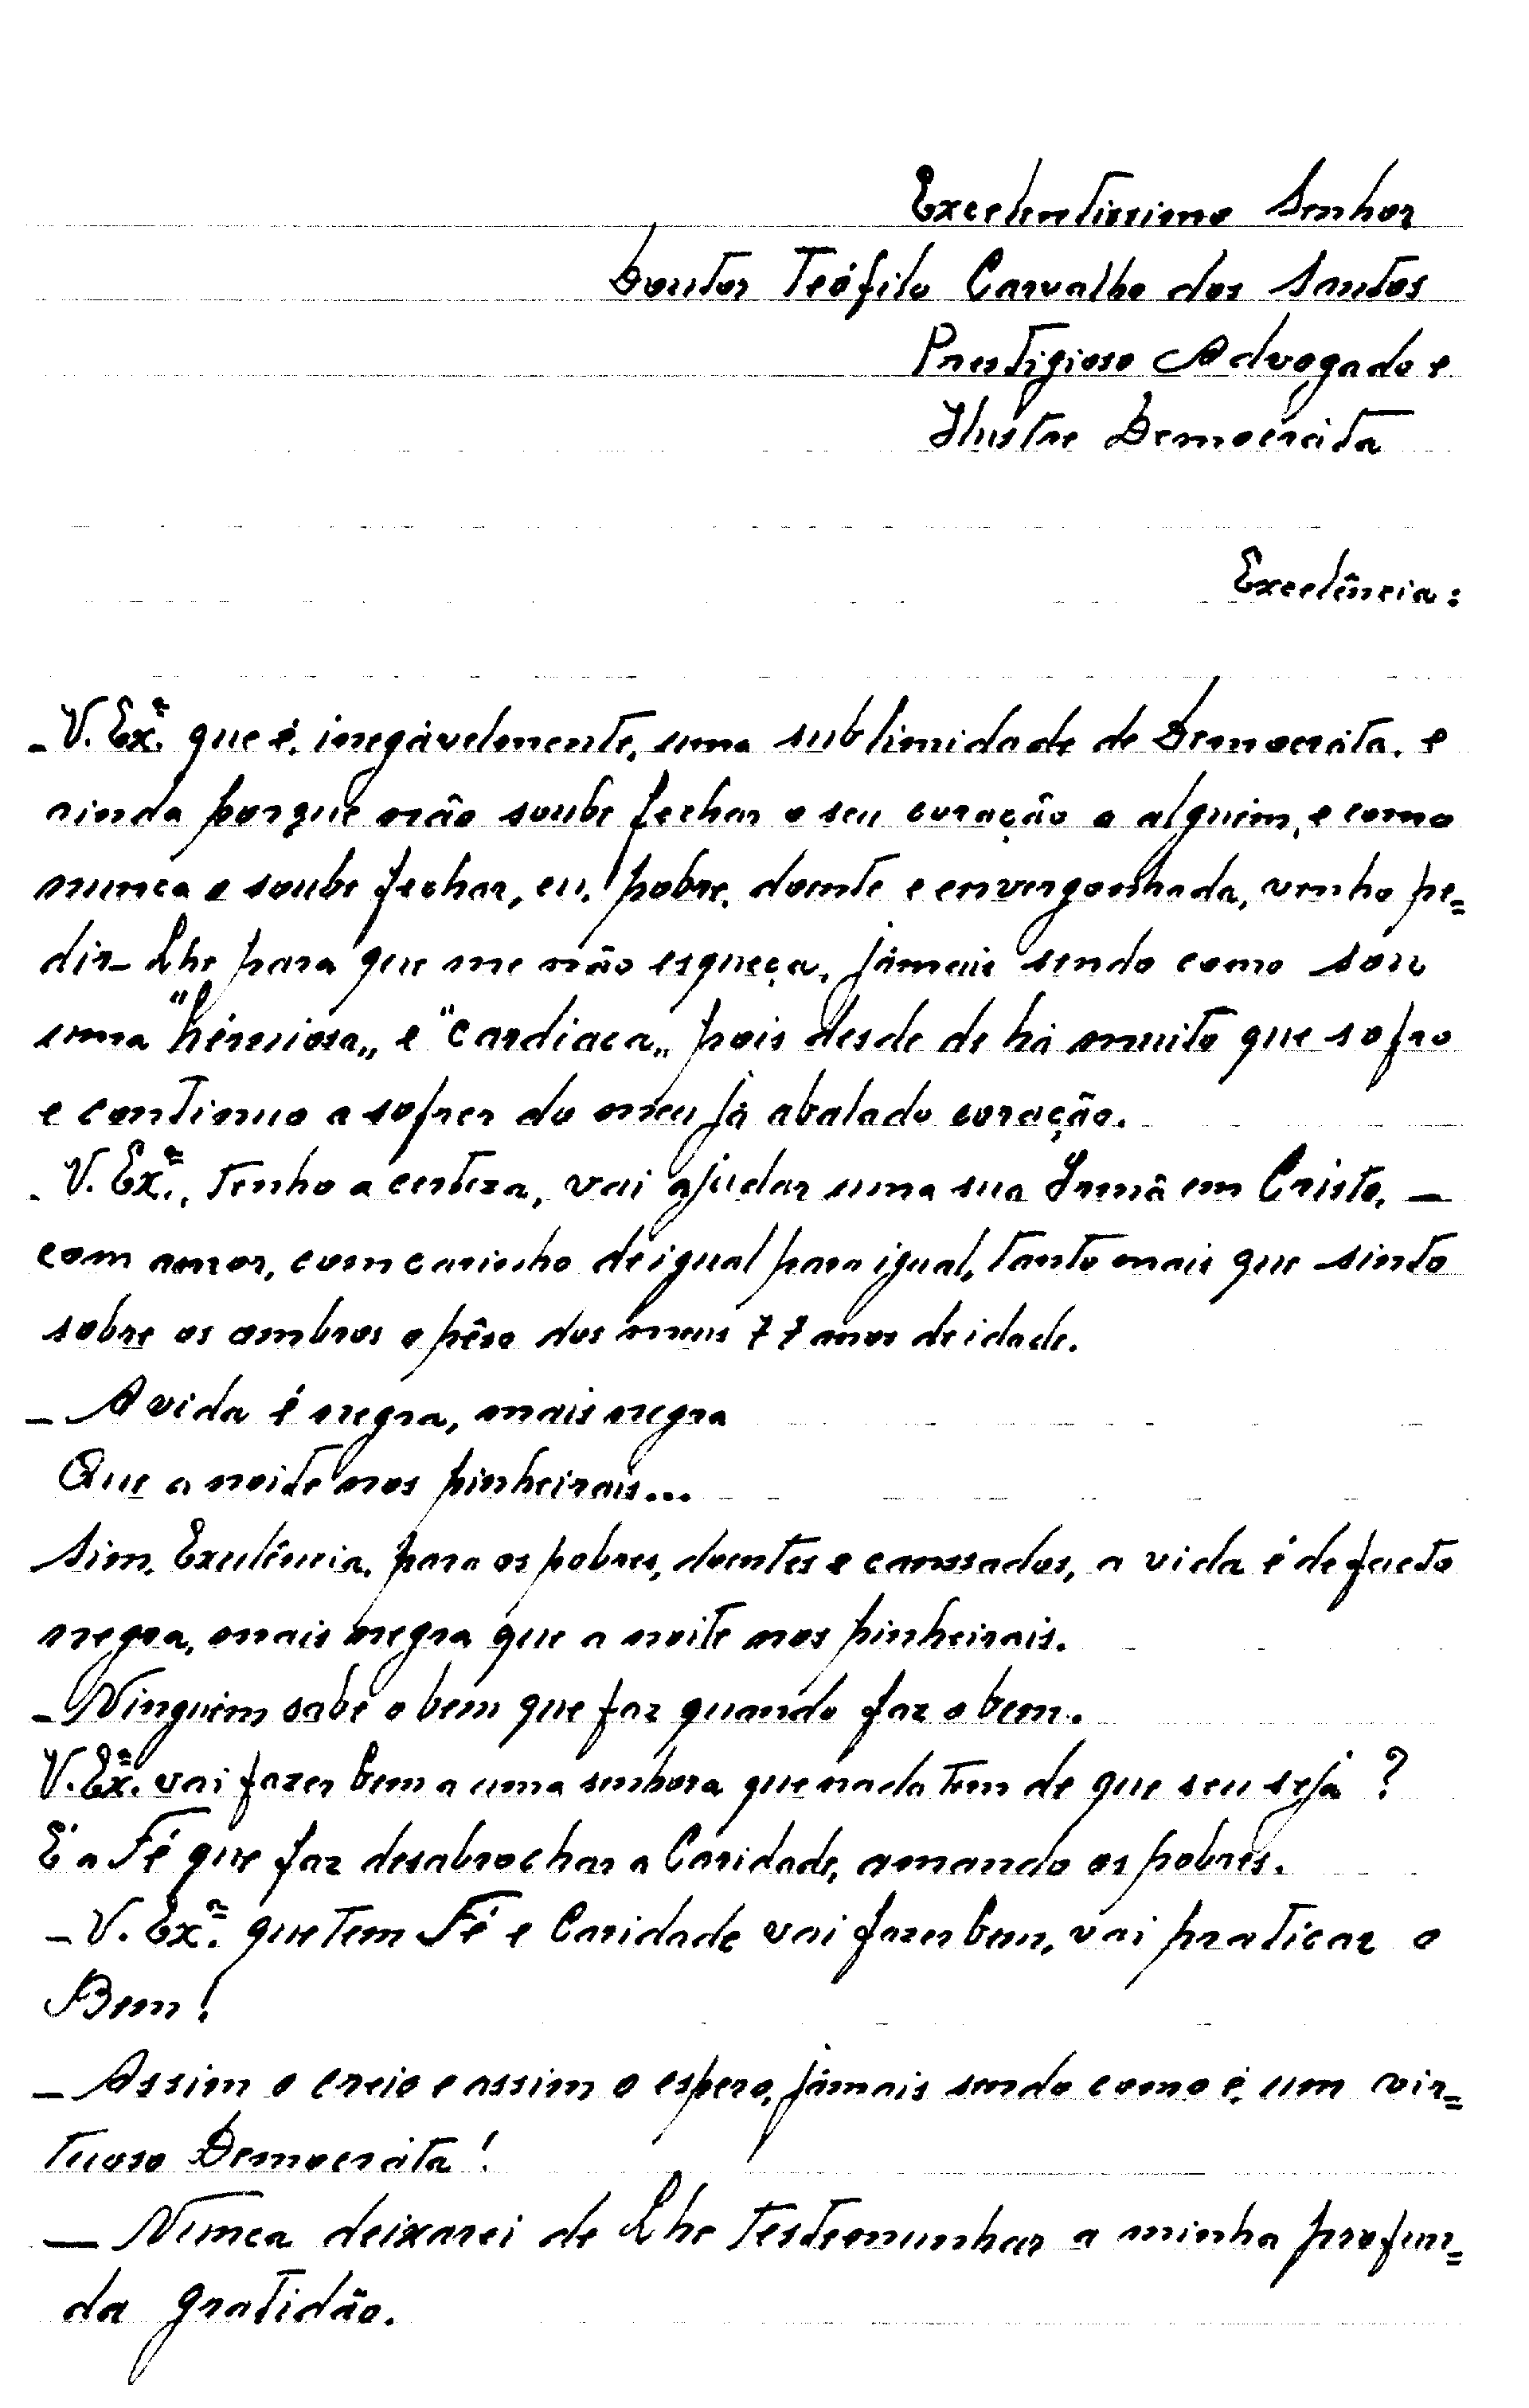 Excelentissimo Senhor
Doutor Teófilo Carvalho dos Santos
Prestigioso Advogado e
Ilustre Democráta
Excelência:
- V. Exª. que é, inegávelmente, uma sublimidade de Democráta, e
ainda porque não soube fechar o seu coração a alguém, e como
nunca o soube fechar, eu, pobre, doente e envergonhada, venho pe=
dir-Lhe para que me não esqueça, jámais sendo como sou
uma "hérniosa" e "cardiaca" pois desde de há muito que sofro
e continuo a sofrer do meu já abalado coração.
- V. Exª., tenho a certeza, vai ajudar uma sua Irmã em Cristo, —
com amor, com carinho de igual para igual, tanto mais que sinto
sobre os ombros o pêso dos meus 77 anos de idade.
- A vida é negra, mais negra
Que a noite nos pinheirais...
Sim, Excelência, para os pobres, doentes e canssados, a vida é de facto
negra, mais negra que a noite nos pinheirais.
- Ninguém sabe o bem que faz quando faz o bem.
V. Exª. vai fazer bem a uma senhora que nada tem de que seu seja?
É a Fé que faz desabrochar a Caridade, amando os pobres.
- V. Exª. que tem Fé e Caridade vai fazer bem, vai praticar o
Bem!
- Assim o creio e assim o espero, jámais sendo como é, um vir=
tuoso Democráta!
— Nunca deixarei de Lhe testemunhar a minha profun=
da gratidão.